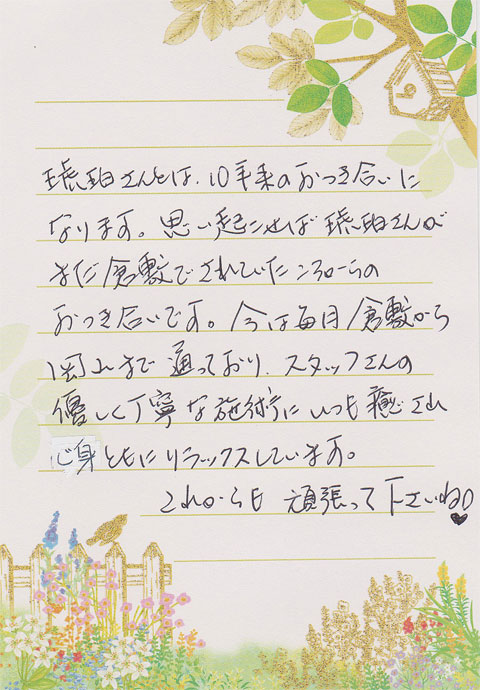 琥珀さんとは、10年来のおつき合いに
なります。思い起こせば琥珀さんが
まだ倉敷でされていたころからの
おつき合いです。今は毎月倉敷から
岡山まで通っており、スタッフさんの
優しく丁寧な施術にいつも癒され
心身ともにリラックスしています。
これからも頑張って下さいね♥